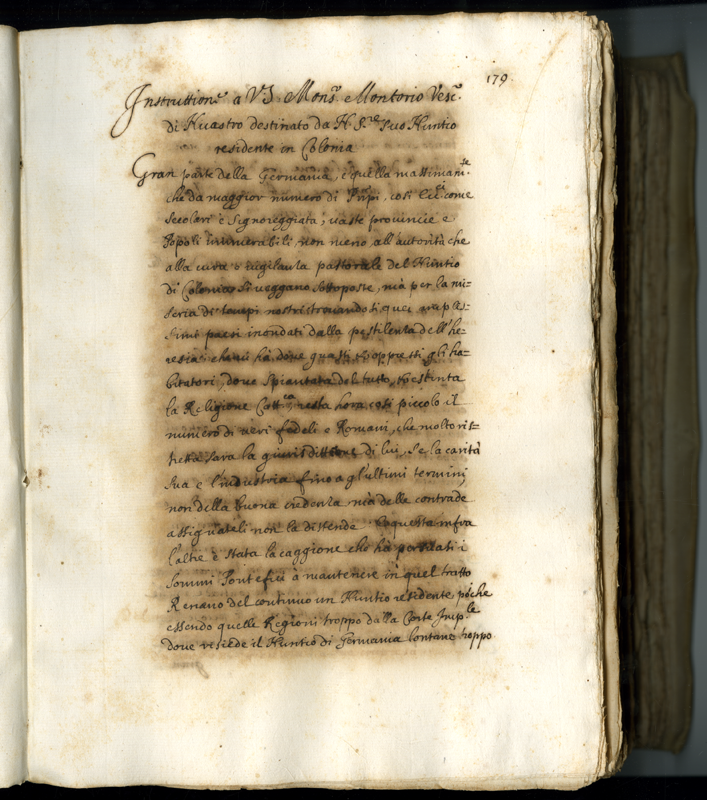 179
Instruttione a V S. Mons.r Montorio Vesc.o
di Nuastro destinato da N. S.re suo Nuntio
residente in Colonia
Gran parte della Germania, e quella massimam.te
che da maggior numero di Prnpi, così Ecc.ci come
Secolari è Signoreggiata, vaste provincie e
Popoli innumerabili, non meno all'autorità che
alla cura e vigilanza pastorale del Nuntio
di Colonia si veggano sottoposte, mà per la mi-
seria di tempi nostri trovandosi quei
paesi inondati dalla pestilenza dell'he-
resia chavu hà dove guasti, ò oppressi gli ha-
bitatori, dove spiantata del tutto, ò estinta
la Religione Catt.ca, resta hora così piccolo il
numero di veri fedeli e Romani, che molto ris-
tretta sara la giurisdittione di lui, se la carità
sua e l'industria fino a gl'ultimi termini,
non della buona credenza mà delle contrade
assignateli non la distende. E questa infra
l'altre è stata la caggione che hà portati i
Sommi Pontefici à mantenere in quel tratto
Renano del continuo un Nuntio residente poiche
essendo quelle Regioni troppo dalla Corte Imp.le
dove resiede il Nuntio di Germania lontane, troppo